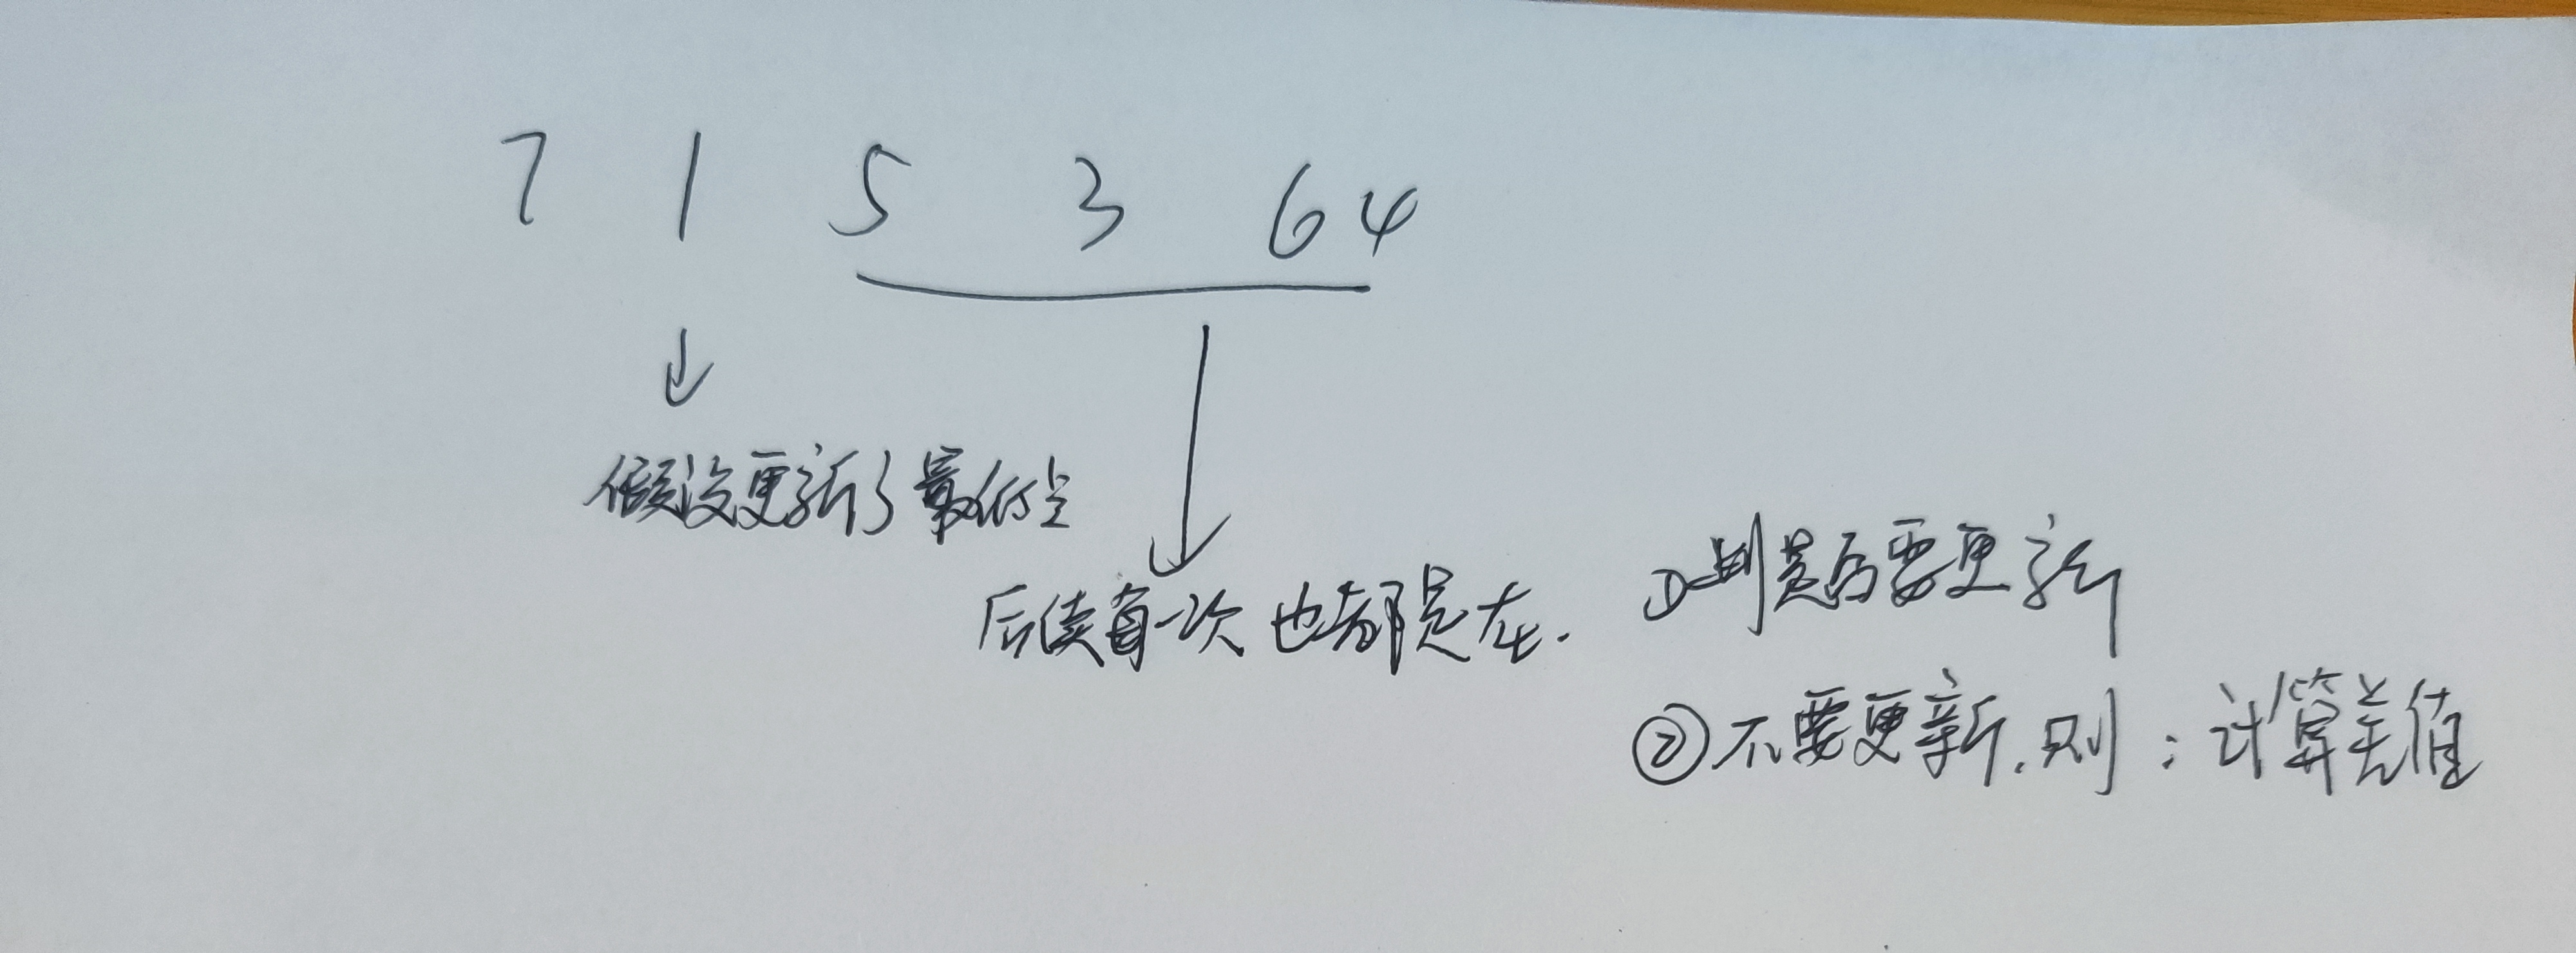 7 1 5 3 6 4
假设更新了最低点
后续每一次也都是在.
①判是否要更新
②不要更新.则：计算差值